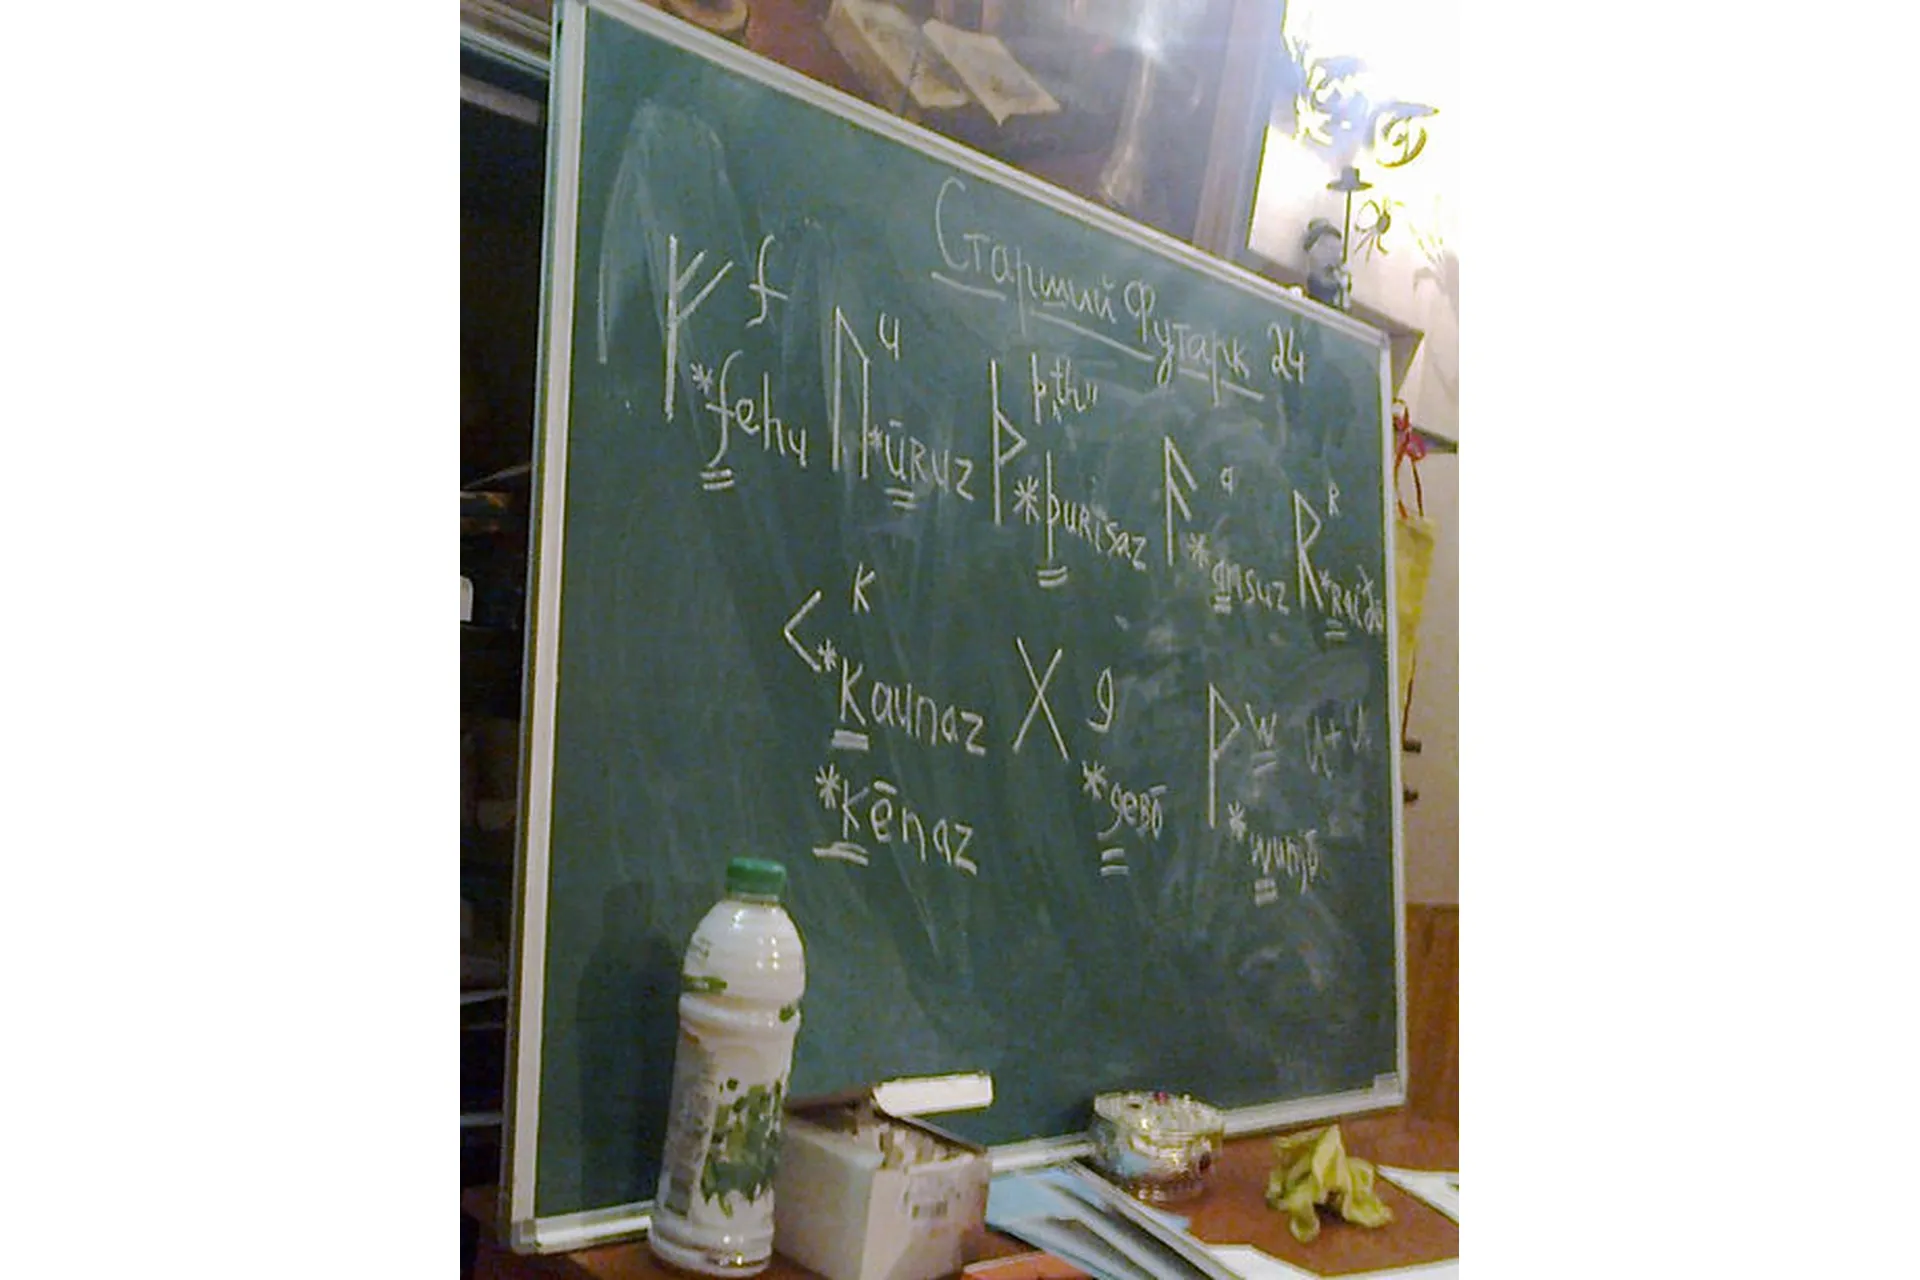 Старший Футарк 24
ᚠ f ᚢ u ᚦ þ „th" ᚨ a ᚱ R
*fehu *ūRuz *þuRisaz *ansuz *Raiđō
ᚲ K ᚷ g ᚹ w u+u
*Kaunaz *gebō *wunjō
*Kēnaz